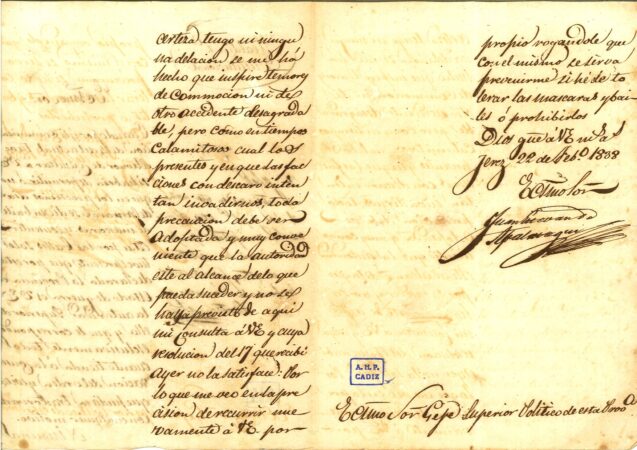 certeza, tengo ni ningu
na delacion se me há
hecho que inspire temor
de Commocion ni de
otro accidente desagrada
ble, pero como en tiempos
Calamitosos cual los
presentes y en que las fac
ciones con descaro inten
tan invadirnos, toda
precaucion debe ser
Adoptada y muy conve
niente que la autoridad
esté al alcance de lo que
pueda suceder y no se
haya previsto de aqui
mi Consulta á VE y cuya
resolucion del 17 que recibi
Ayer no la satisface: Por
lo que me veo en la pre
cision de recurrir nue
vamente á VE por
propio rogandole que
con el mismo se sirva
prevenirme si hé de to
lerar las mascaras y bai
les ó prohibirlos
Dios gue á VE m.s a.s
Jerez 22 de Feb.o 1838
Ecsmo Sor
Juan Fernando
A.H.P.
CADIZ
Ecsmo Sor Gefe Superior Politico de esta Prov.a